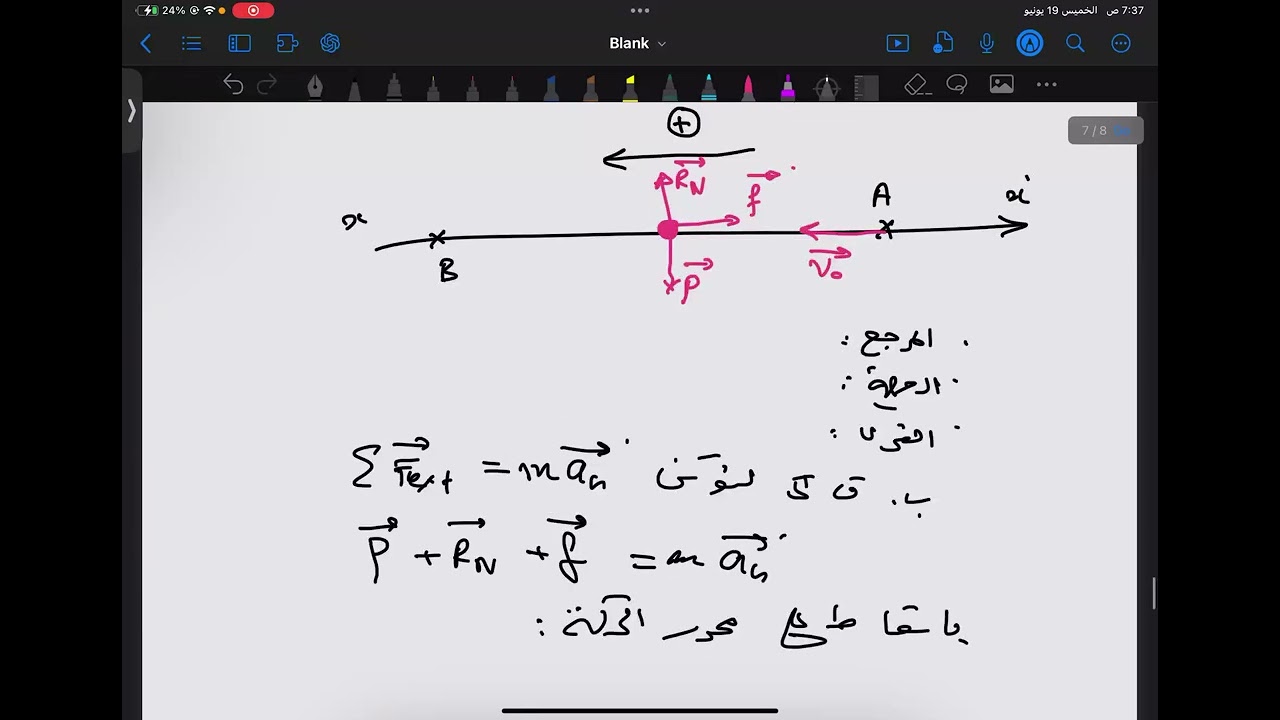 24%
7:37 ص الخميس 19 يونيو
Blank
7 / 8
+
R_N
f
A
x'
x
B
V₀
P
المرجع :
الجملة :
القوى :
ب. ق 2 لنيوتن Σ F⃗ext = m a⃗G
P⃗ + R⃗N + f⃗ = m a⃗G
باسقاط على محور الحركة :